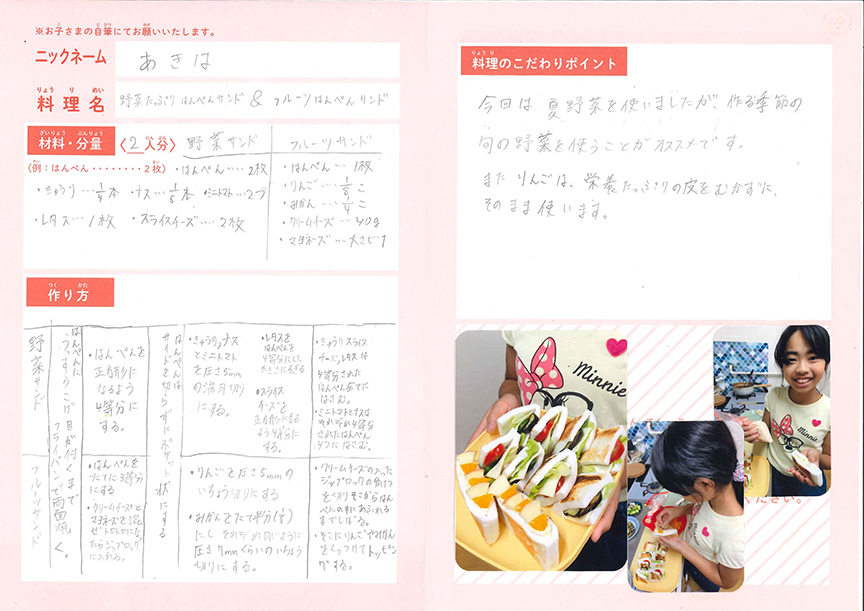 ※お子さまの自筆にてお願いいたします。
ニックネーム
あきは
料理名
野菜たっぷりはんぺんサンド & フルーツはんぺんサンド
材料・分量
〈2人分〉
(例：はんぺん ········ 2枚)
野菜サンド
・はんぺん‥‥2枚
・きゅうり…1/4本 ・ナス…1/5本 ・ミニトマト…2つ
・レタス…1枚 ・スライスチーズ…2枚
フルーツサンド
・はんぺん…1枚
・りんご…1/8こ
・みかん…1/4こ
・クリームチーズ…40g
・マヨネーズ…大さじ1
作り方
野菜サンド
フルーツサンド
はんぺんに
うっすらこげ目が付くまで
フライパンで両面焼く。
・はんぺんを
正方形に
なるよう
4等分に
する。
・はんぺんを
たてに3等分
にする
・クリームチーズと
マヨネーズを混
ぜ
ジップロック
に入れる。
はんぺんは
サイドを切らずにポケット状にする
・きゅうり,ナス
とミニトマト
を厚さ5mm
の満月切り
にする。
・レタスを
はんぺんを
4等分にした
大きさにちぎる
・スライス
チーズを
正方形になる
よう4等分に
する。
・きゅうり,スライス
チーズ,レタスは
4等分された
はんぺん全てに
はさむ。
・ミニトマトとナスは
それぞれ4等分
されたはんぺん
にはさむ。
・りんごを厚さ5mmの
いちょう切りにする
・みかんをたて半分(1/2)
にし
厚さ7mmくらいのいちょう
切りにする。
・クリームチーズの入った
ジップロックの角1つ
を切りそこからはん
ぺんの中にあふれる
までしぼる。
・そこにりんごやみかん
をくっつけてトッピン
グする。
料理のこだわりポイント
今回は夏野菜を使いましたが、作る季節の
旬の野菜を使うことがオススメです。
また りんごは、栄養たっぷりの皮をむかずに、
そのまま使います。
Minnie
Minnie
ください。